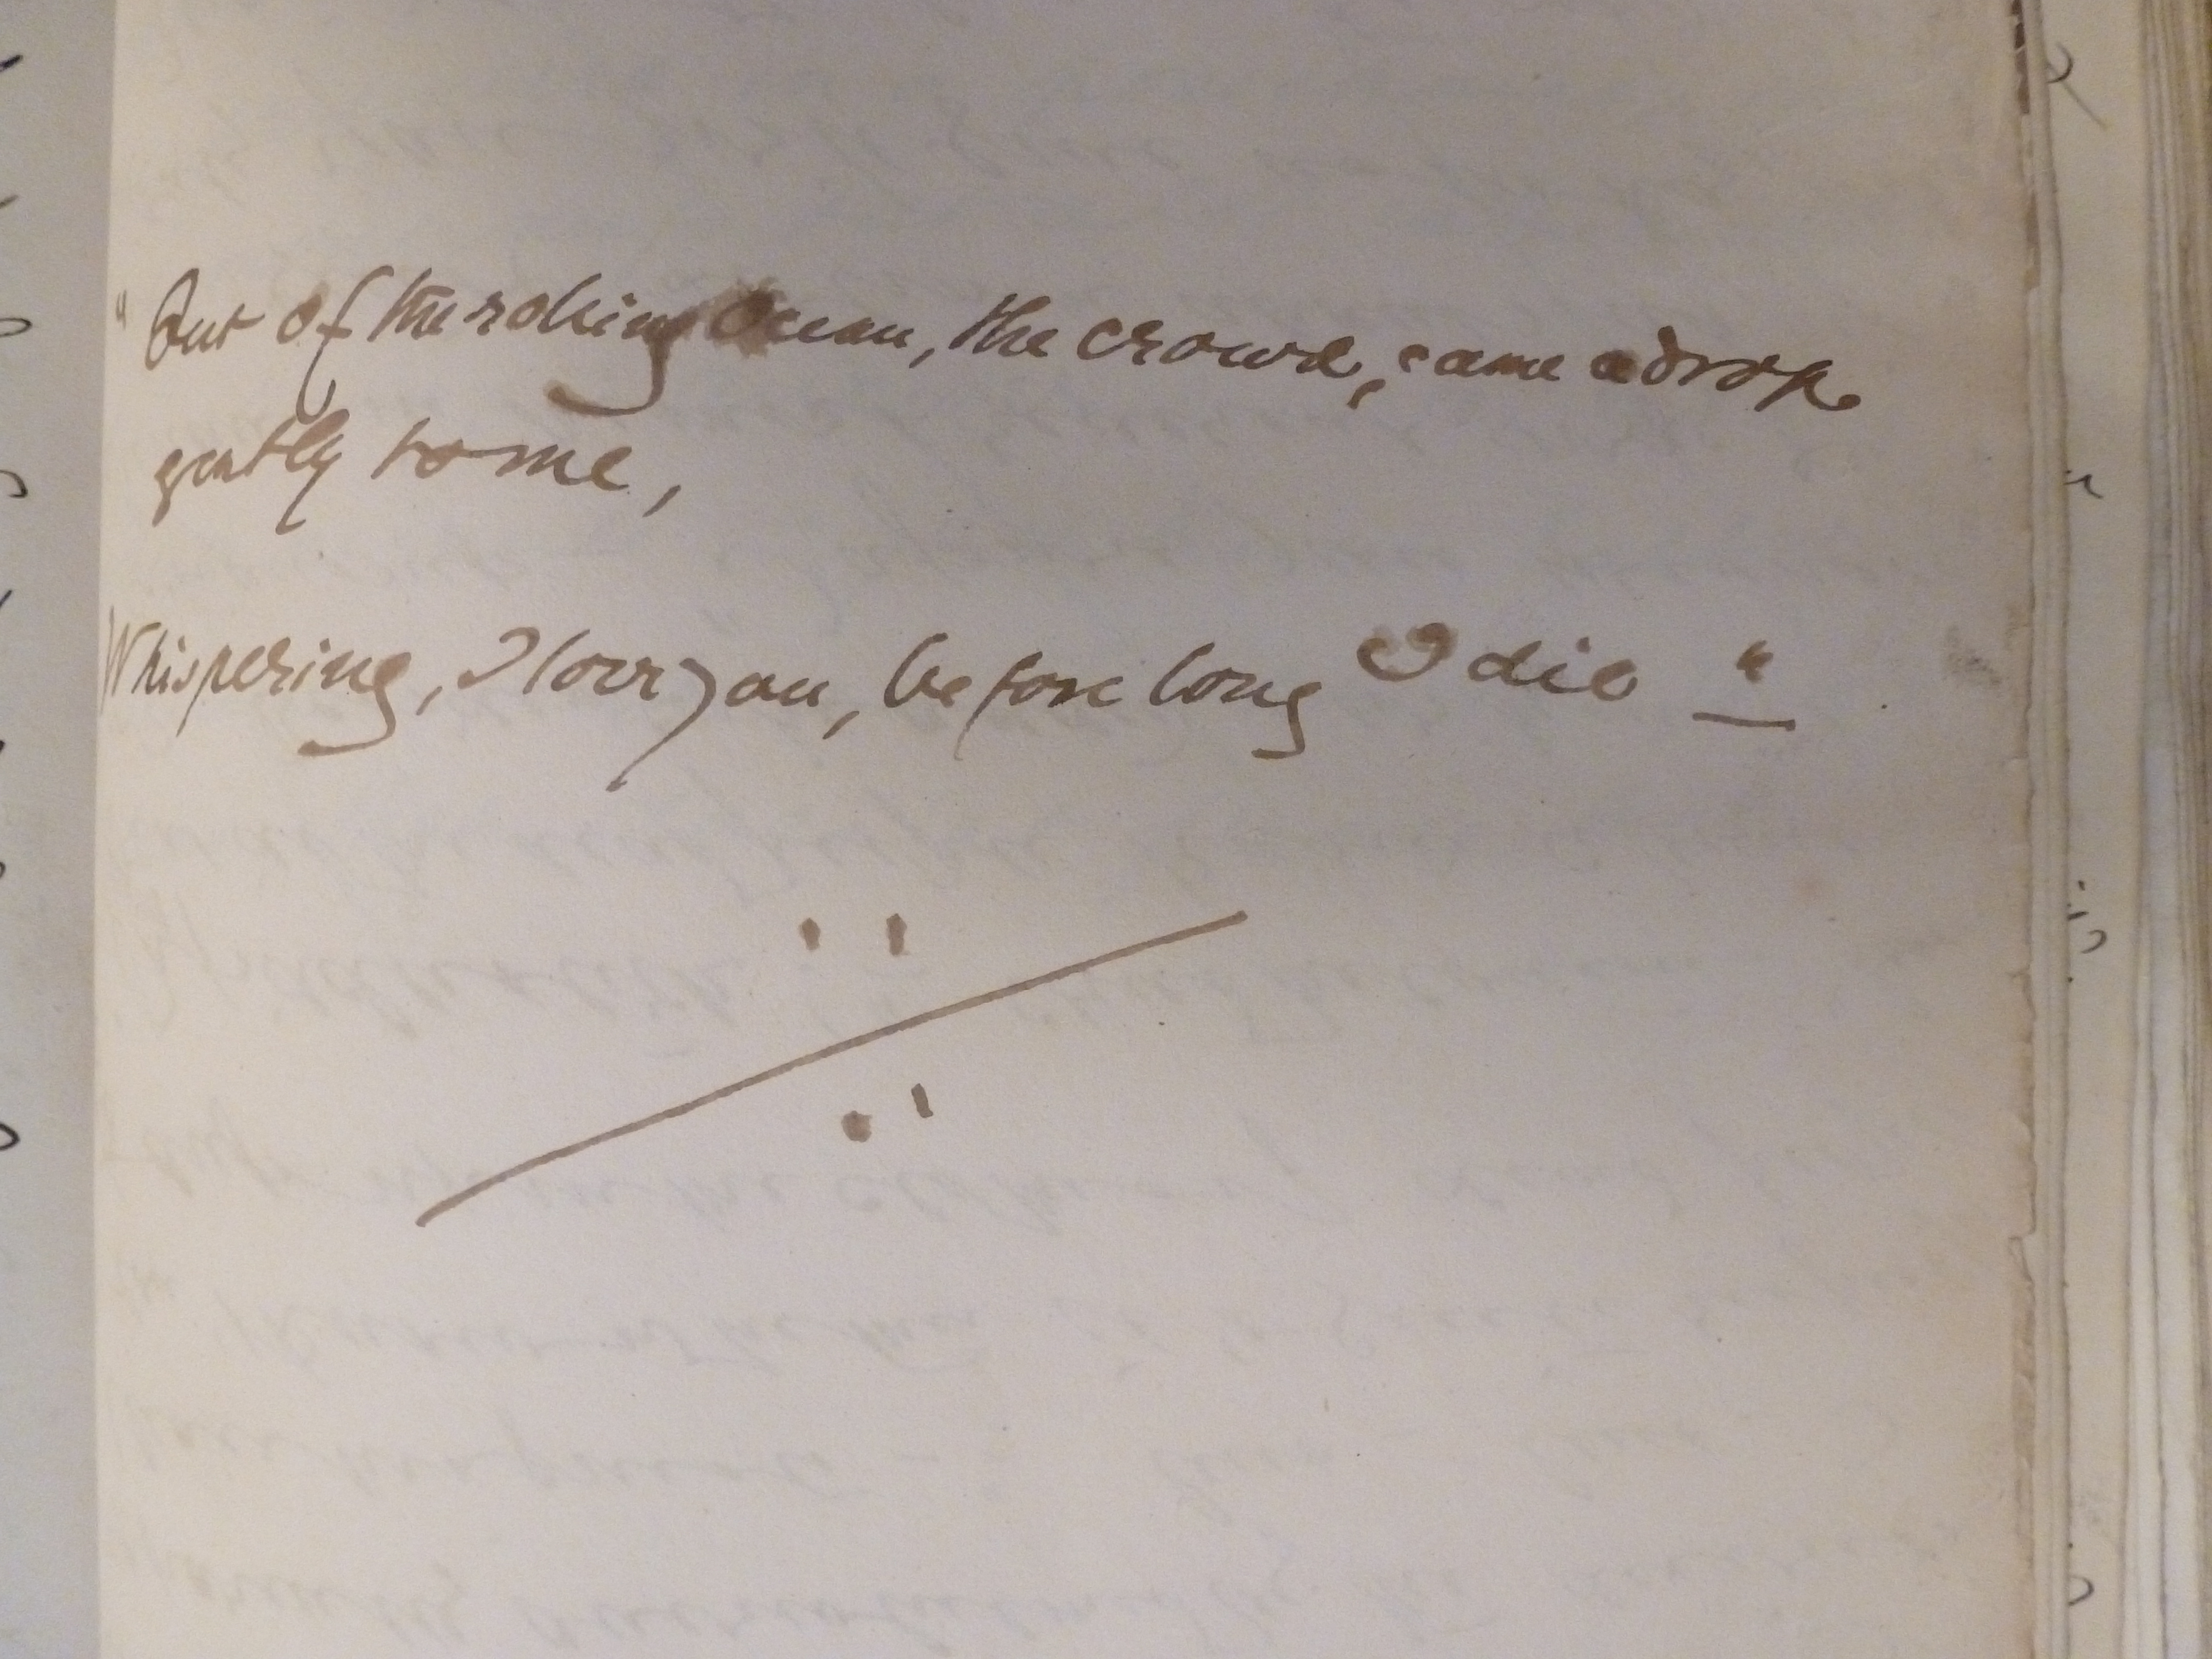 "Out of the rolling Ocean, the crowd, came a drop
gently to me,
Whispering, I love you, before long I die "